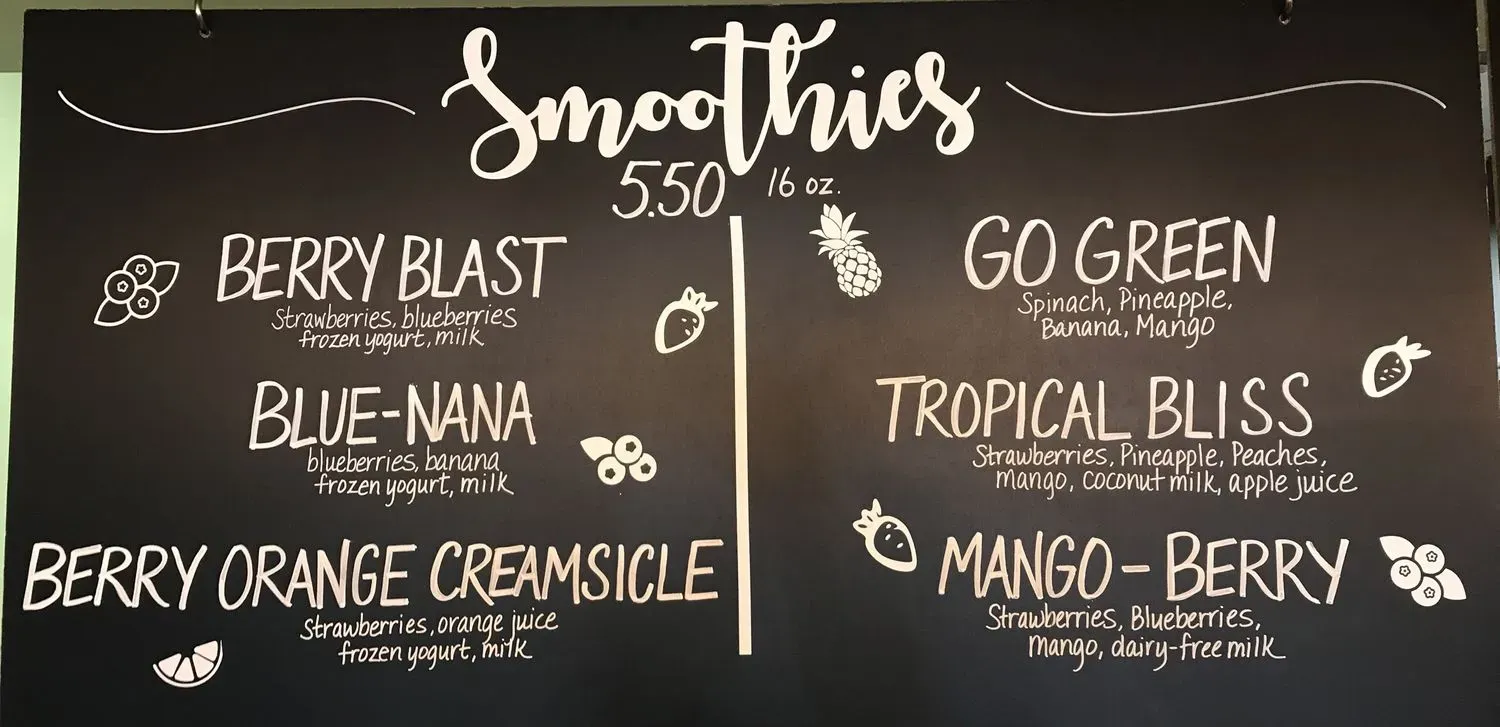 Smoothies
5.50 16 oz.
BERRY BLAST
Strawberries, blueberries
frozen yogurt, milk
BLUE-NANA
blueberries, banana
frozen yogurt, milk
BERRY ORANGE CREAMSICLE
Strawberries, orange juice
frozen yogurt, milk
GO GREEN
Spinach, Pineapple,
Banana, Mango
TROPICAL BLISS
Strawberries, Pineapple, Peaches,
mango, coconut milk, apple juice
MANGO-BERRY
Strawberries, Blueberries,
mango, dairy-free milk